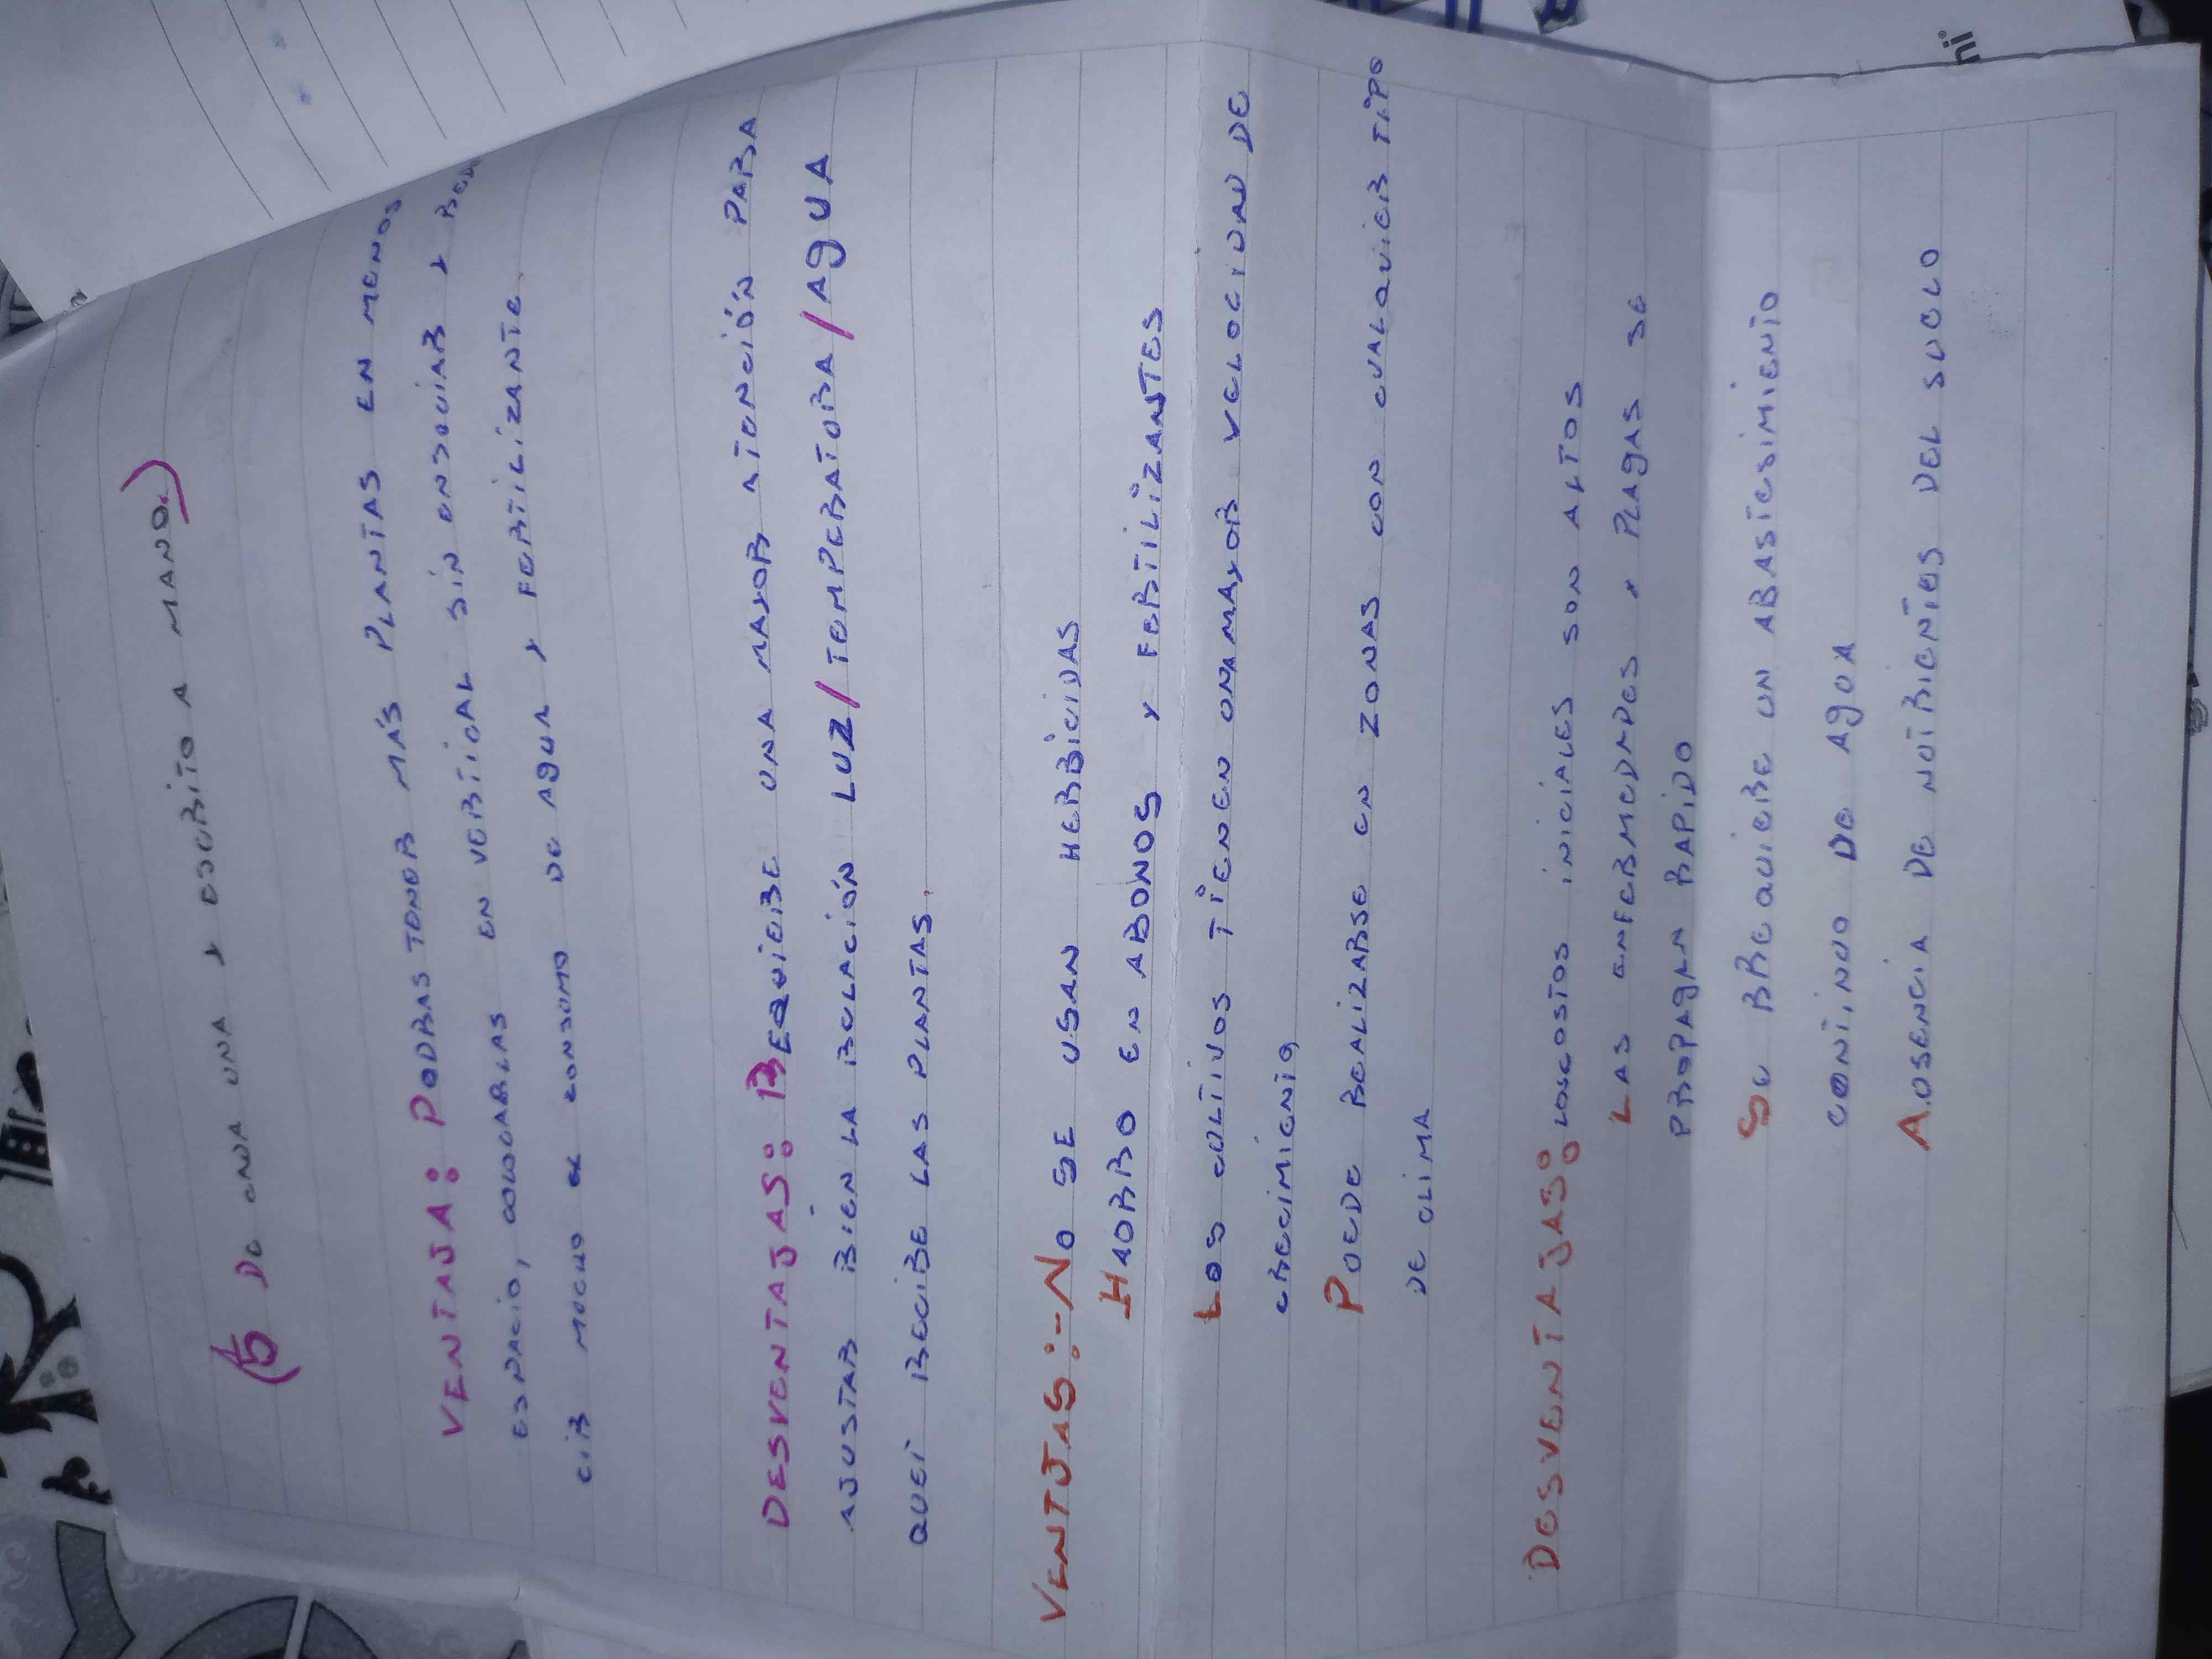 (5 DE CADA UNA Y ESCRITO A MANO.)
VENTAJA: PODRAS TENER MÁS PLANTAS EN MENOS
ESPACIO, COLOCARLAS EN VERTICAL SIN ENSUCIAR Y
CIR MUCHO EL CONSUMO DE AGUA Y FERTILIZANTE.
DESVENTAJAS: REQUIERE UNA MAYOR ATENCIÓN PARA
AJUSTAR BIEN LA RELACIÓN LUZ/TEMPERATURA/AGUA
QUEI RECIBE LAS PLANTAS.
VENTJAS:-NO SE USAN HERBICIDAS
HAORRO EN ABONOS Y FERTILIZANTES
LOS CULTIVOS TIENEN UNA MAYOR VELOCIDAD DE
CRECIMIENTO
PUEDE REALIZARSE EN ZONAS CON CUALQUIER TIPO
DE CLIMA
DESVENTAJAS: LOSCOSTOS INICIALES SON ALTOS
LAS ENFERMEDADES Y PLAGAS SE
PROPAGAN RAPIDO
SE RREQUIERE UN ABASTESIMIENTO
CONTINUO DE AGUA
AUSENCIA DE NUTRIENTES DEL SUELO
ni